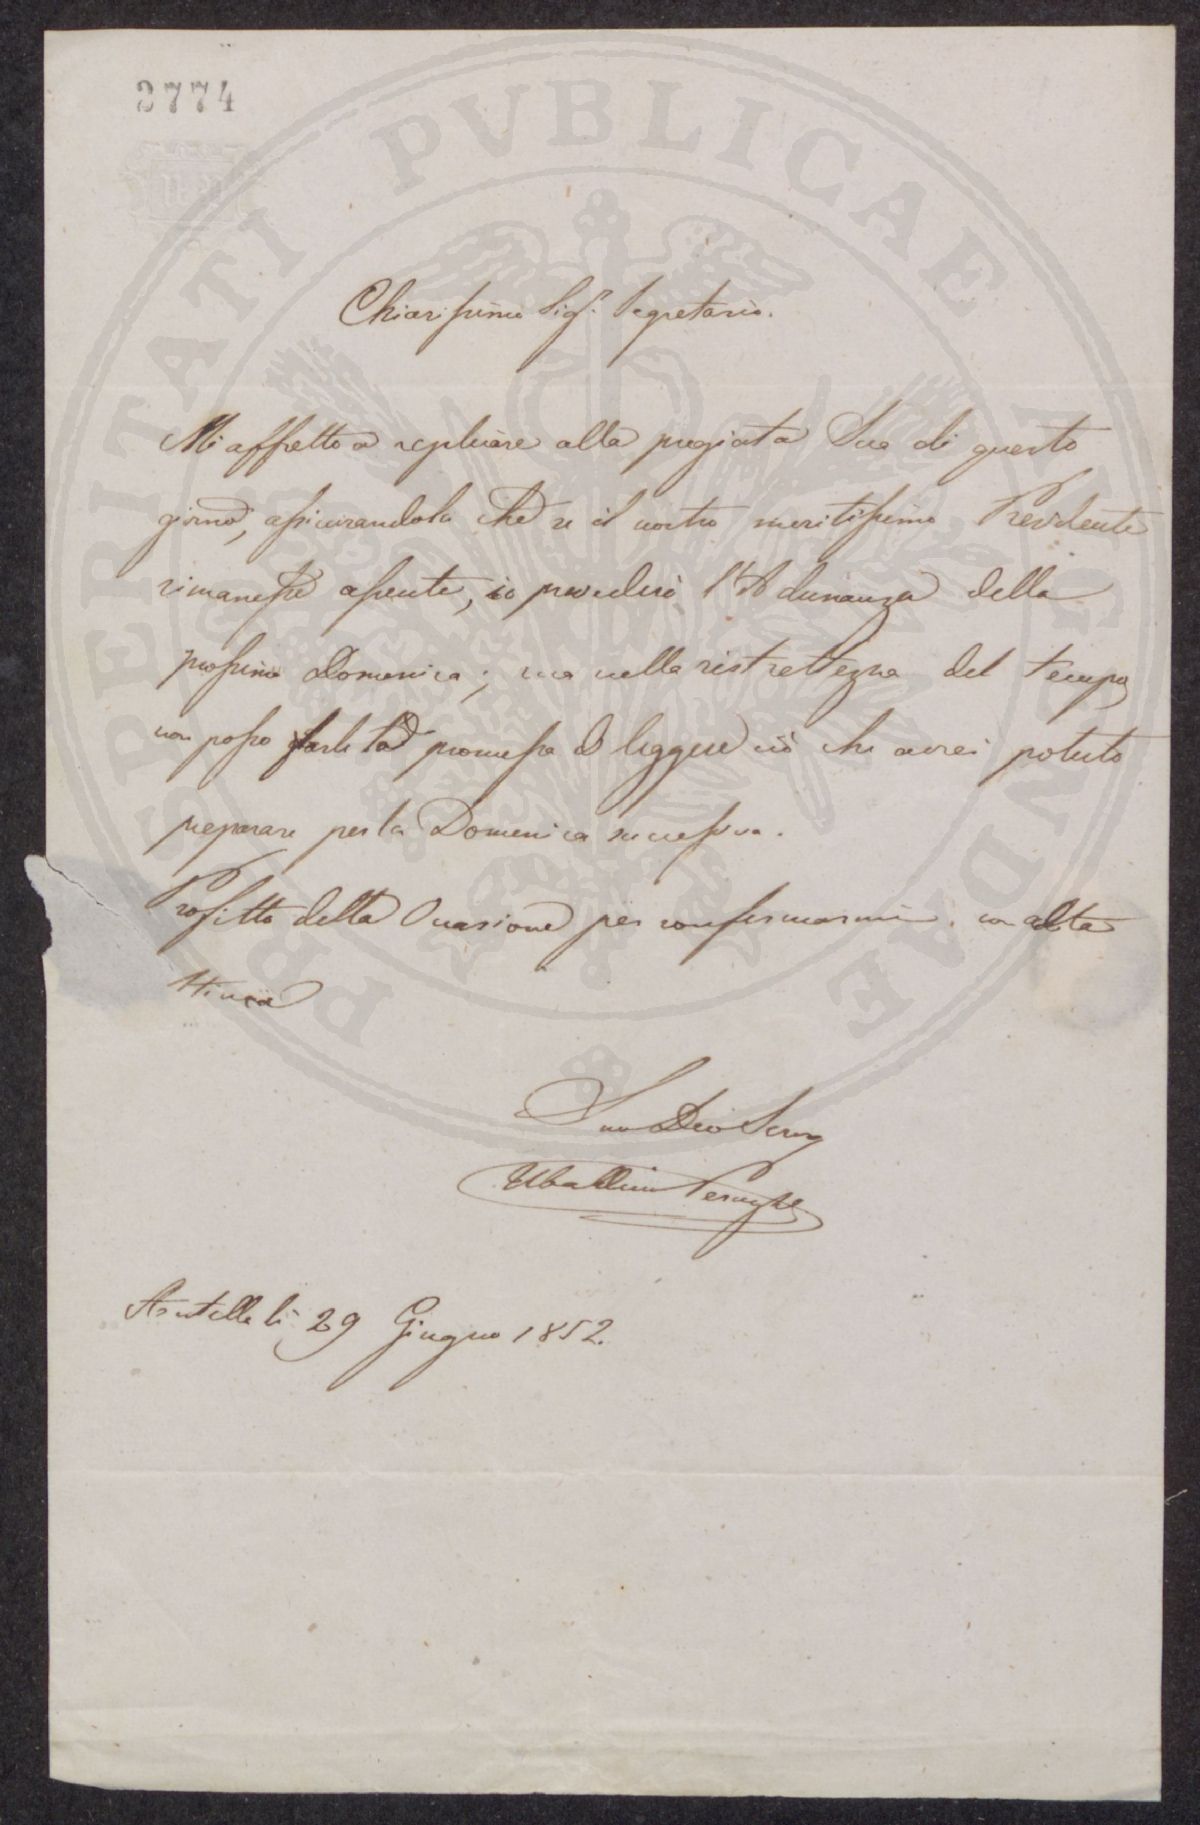 3774
PROSPERITATI PUBLICAE AUGENDAE
Chiarissimo Sig.r Segretario.
Mi affretto a replicare alla pregiata Sua di questo
giorno, assicurandola che se il nostro meritissimo Presidente
rimanesse assente, io presiederò l'Adunanza della
prossima Domenica; ma nella ristrettezza del tempo
non posso farle promessa di leggere ciò che avrei potuto
preparare per la Domenica successiva.
Profitto della Occasione per confermarmi con alta
stima
Suo Dev Serv
Ubaldino Peruzzi
li 29 Giugno 1852.